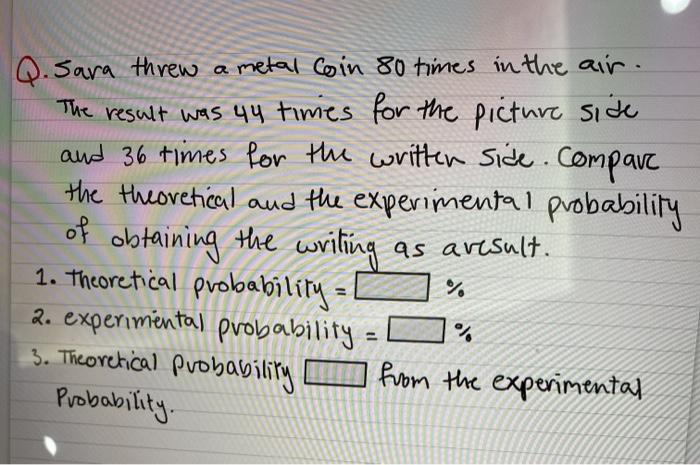 Q. Sara threw a metal Coin 80 times in the air.
The result was 44 times for the picture side
and 36 times for the written side. Compare
the theoretical and the experimental probability
of obtaining the writing as aresult.
1. Theoretical probability = %
2. experimental probability = %
3. Theoretical Probability from the experimental
Probability.